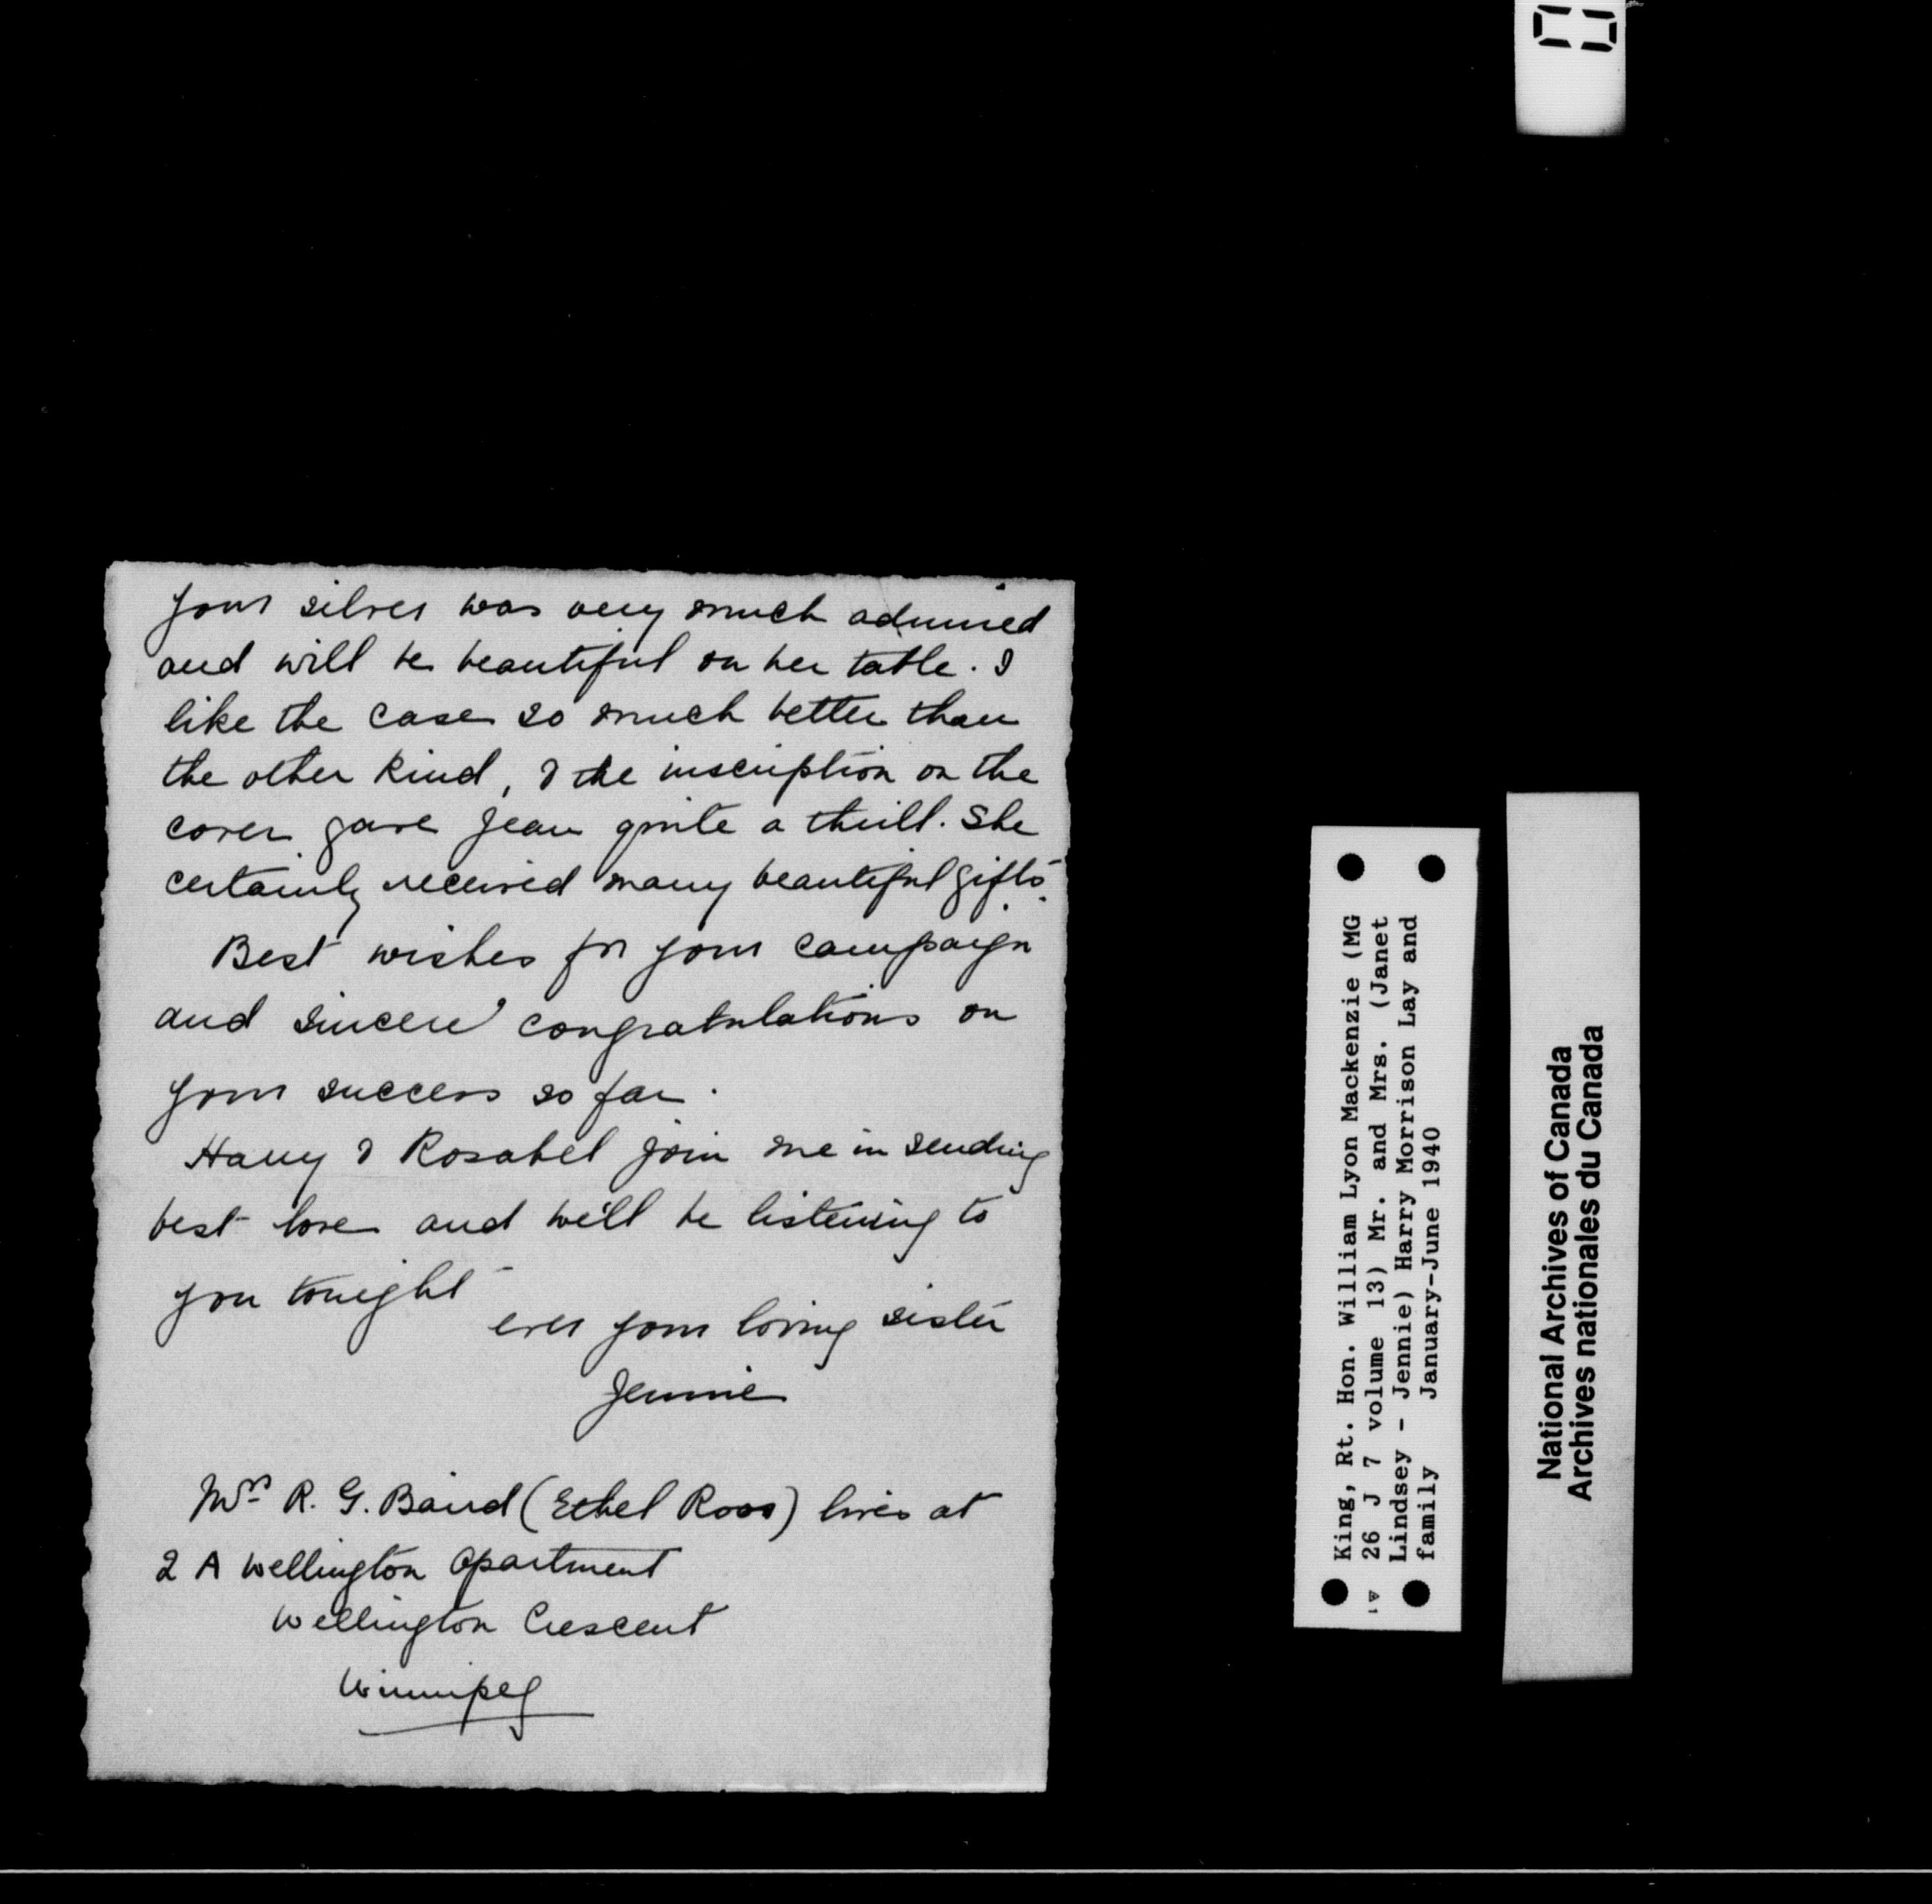 Your silver was very much admired
and will be beautiful on her table. I
like the case so much better than
the other kind, & the inscription on the
cover gave Jean quite a thrill. She
certainly received many beautiful gifts.
Best wishes for your campaign
and sincere congratulations on
your success so far.
Harry & Rosabel join me in sending
best love and we'll be listening to
you tonight
ever your loving sister
Jennie
Mrs R. G. Baird (Ethel Ross) lives at
2 A Wellington Apartment
Wellington Crescent
Winnipeg
King, Rt. Hon. William Lyon Mackenzie (MG
26 J 7 volume 13) Mr. and Mrs. (Janet
Lindsey - Jennie) Harry Morrison Lay and
family January-June 1940
National Archives of Canada
Archives nationales du Canada